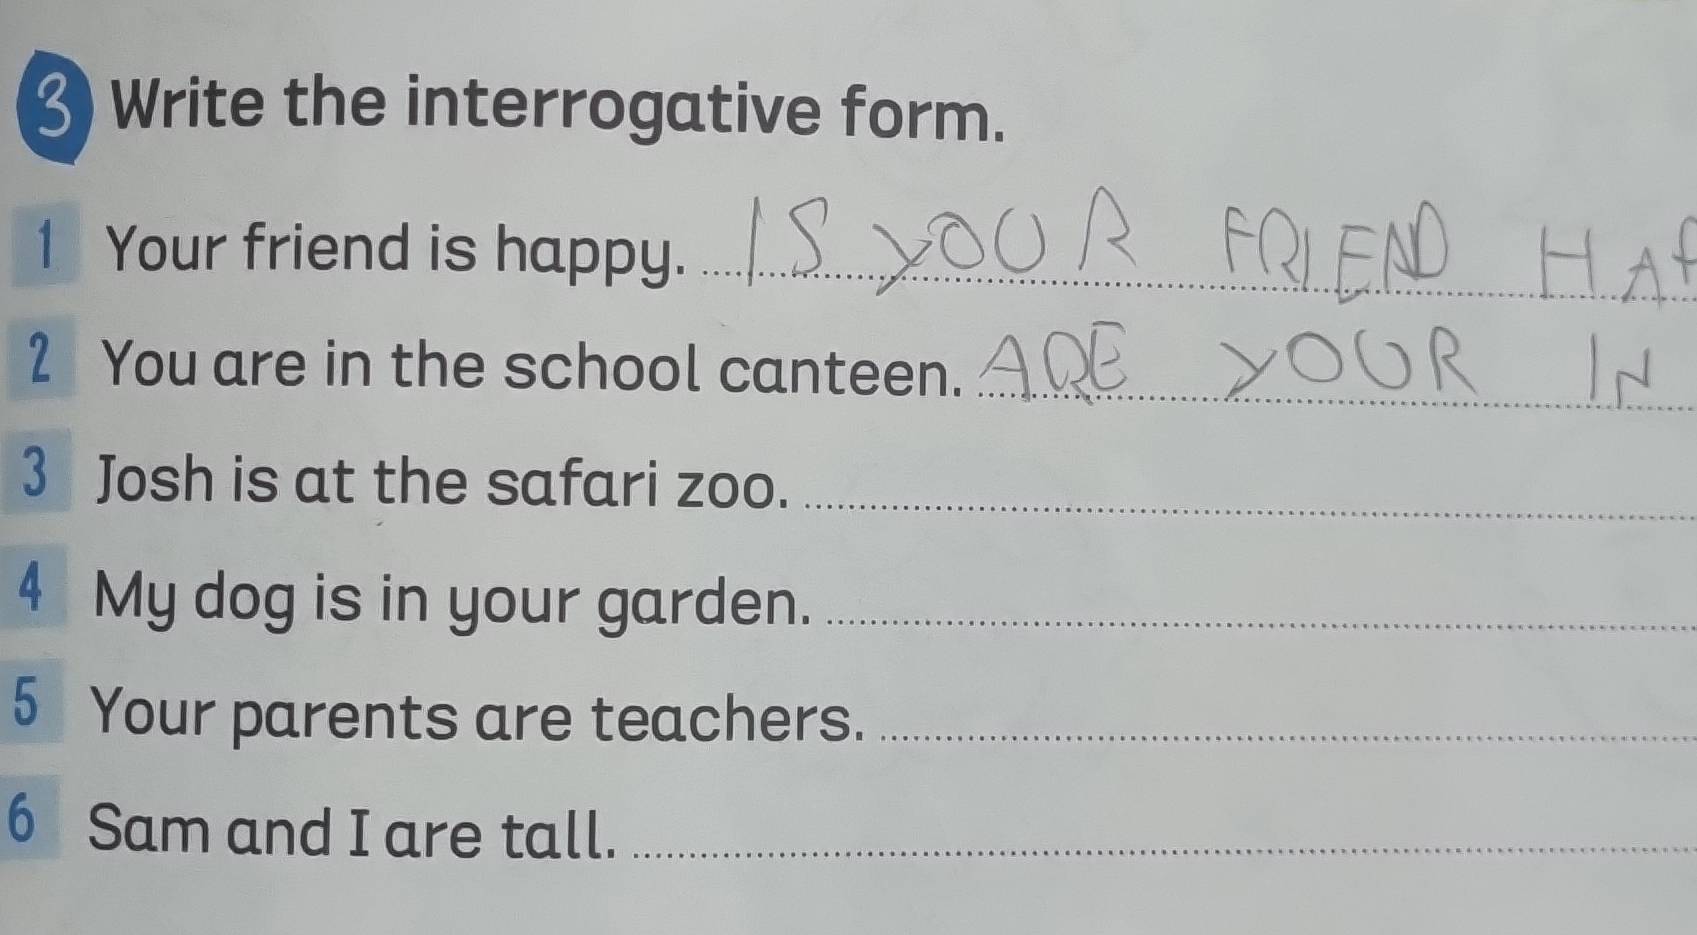 3 Write the interrogative form.
1 Your friend is happy. IS YOUR FRIEND HAP
2 You are in the school canteen. ARE YOUR IN
3 Josh is at the safari zoo.
4 My dog is in your garden.
5 Your parents are teachers.
6 Sam and I are tall.